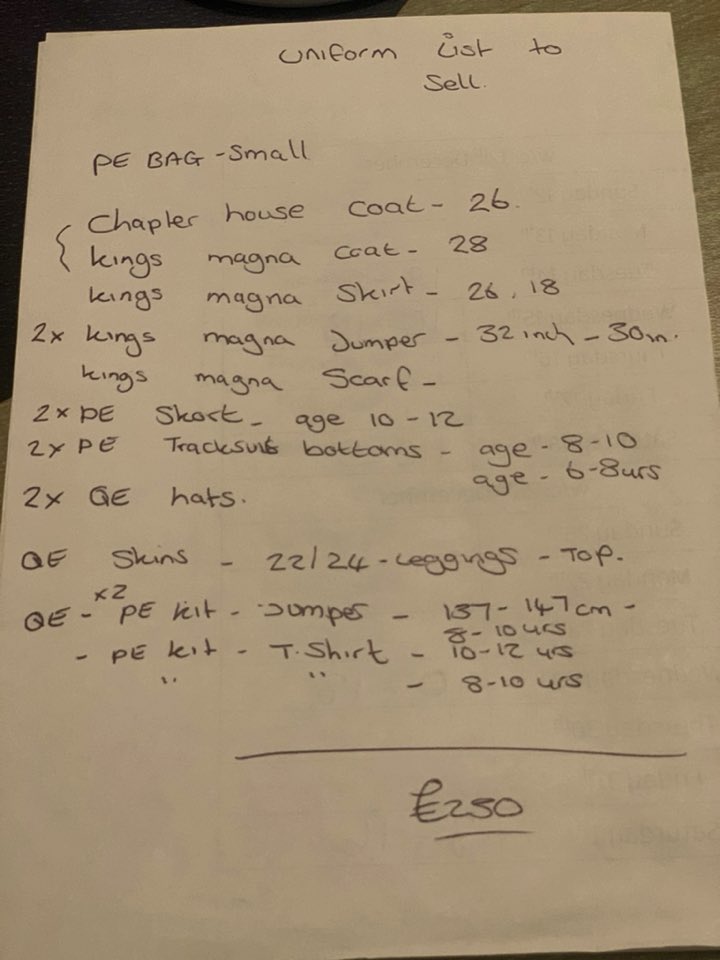 Uniform List to
Sell.
PE BAG - Small
Chapter house coat - 26.
kings magna coat - 28
kings magna Skirt - 26, 18
2x kings magna Jumper - 32 inch - 30in.
kings magna Scarf -
2x PE Skort - age 10-12
2x PE Tracksuit bottoms - age - 8-10
age - 6-8yrs
2x QE hats.
QE Skins - 22/24 - Leggings - Top.
QE - x2 PE kit - Jumper - 137-147cm -
8-10yrs
- PE kit - T.Shirt - 10-12 yrs
" " - 8-10 yrs
£250